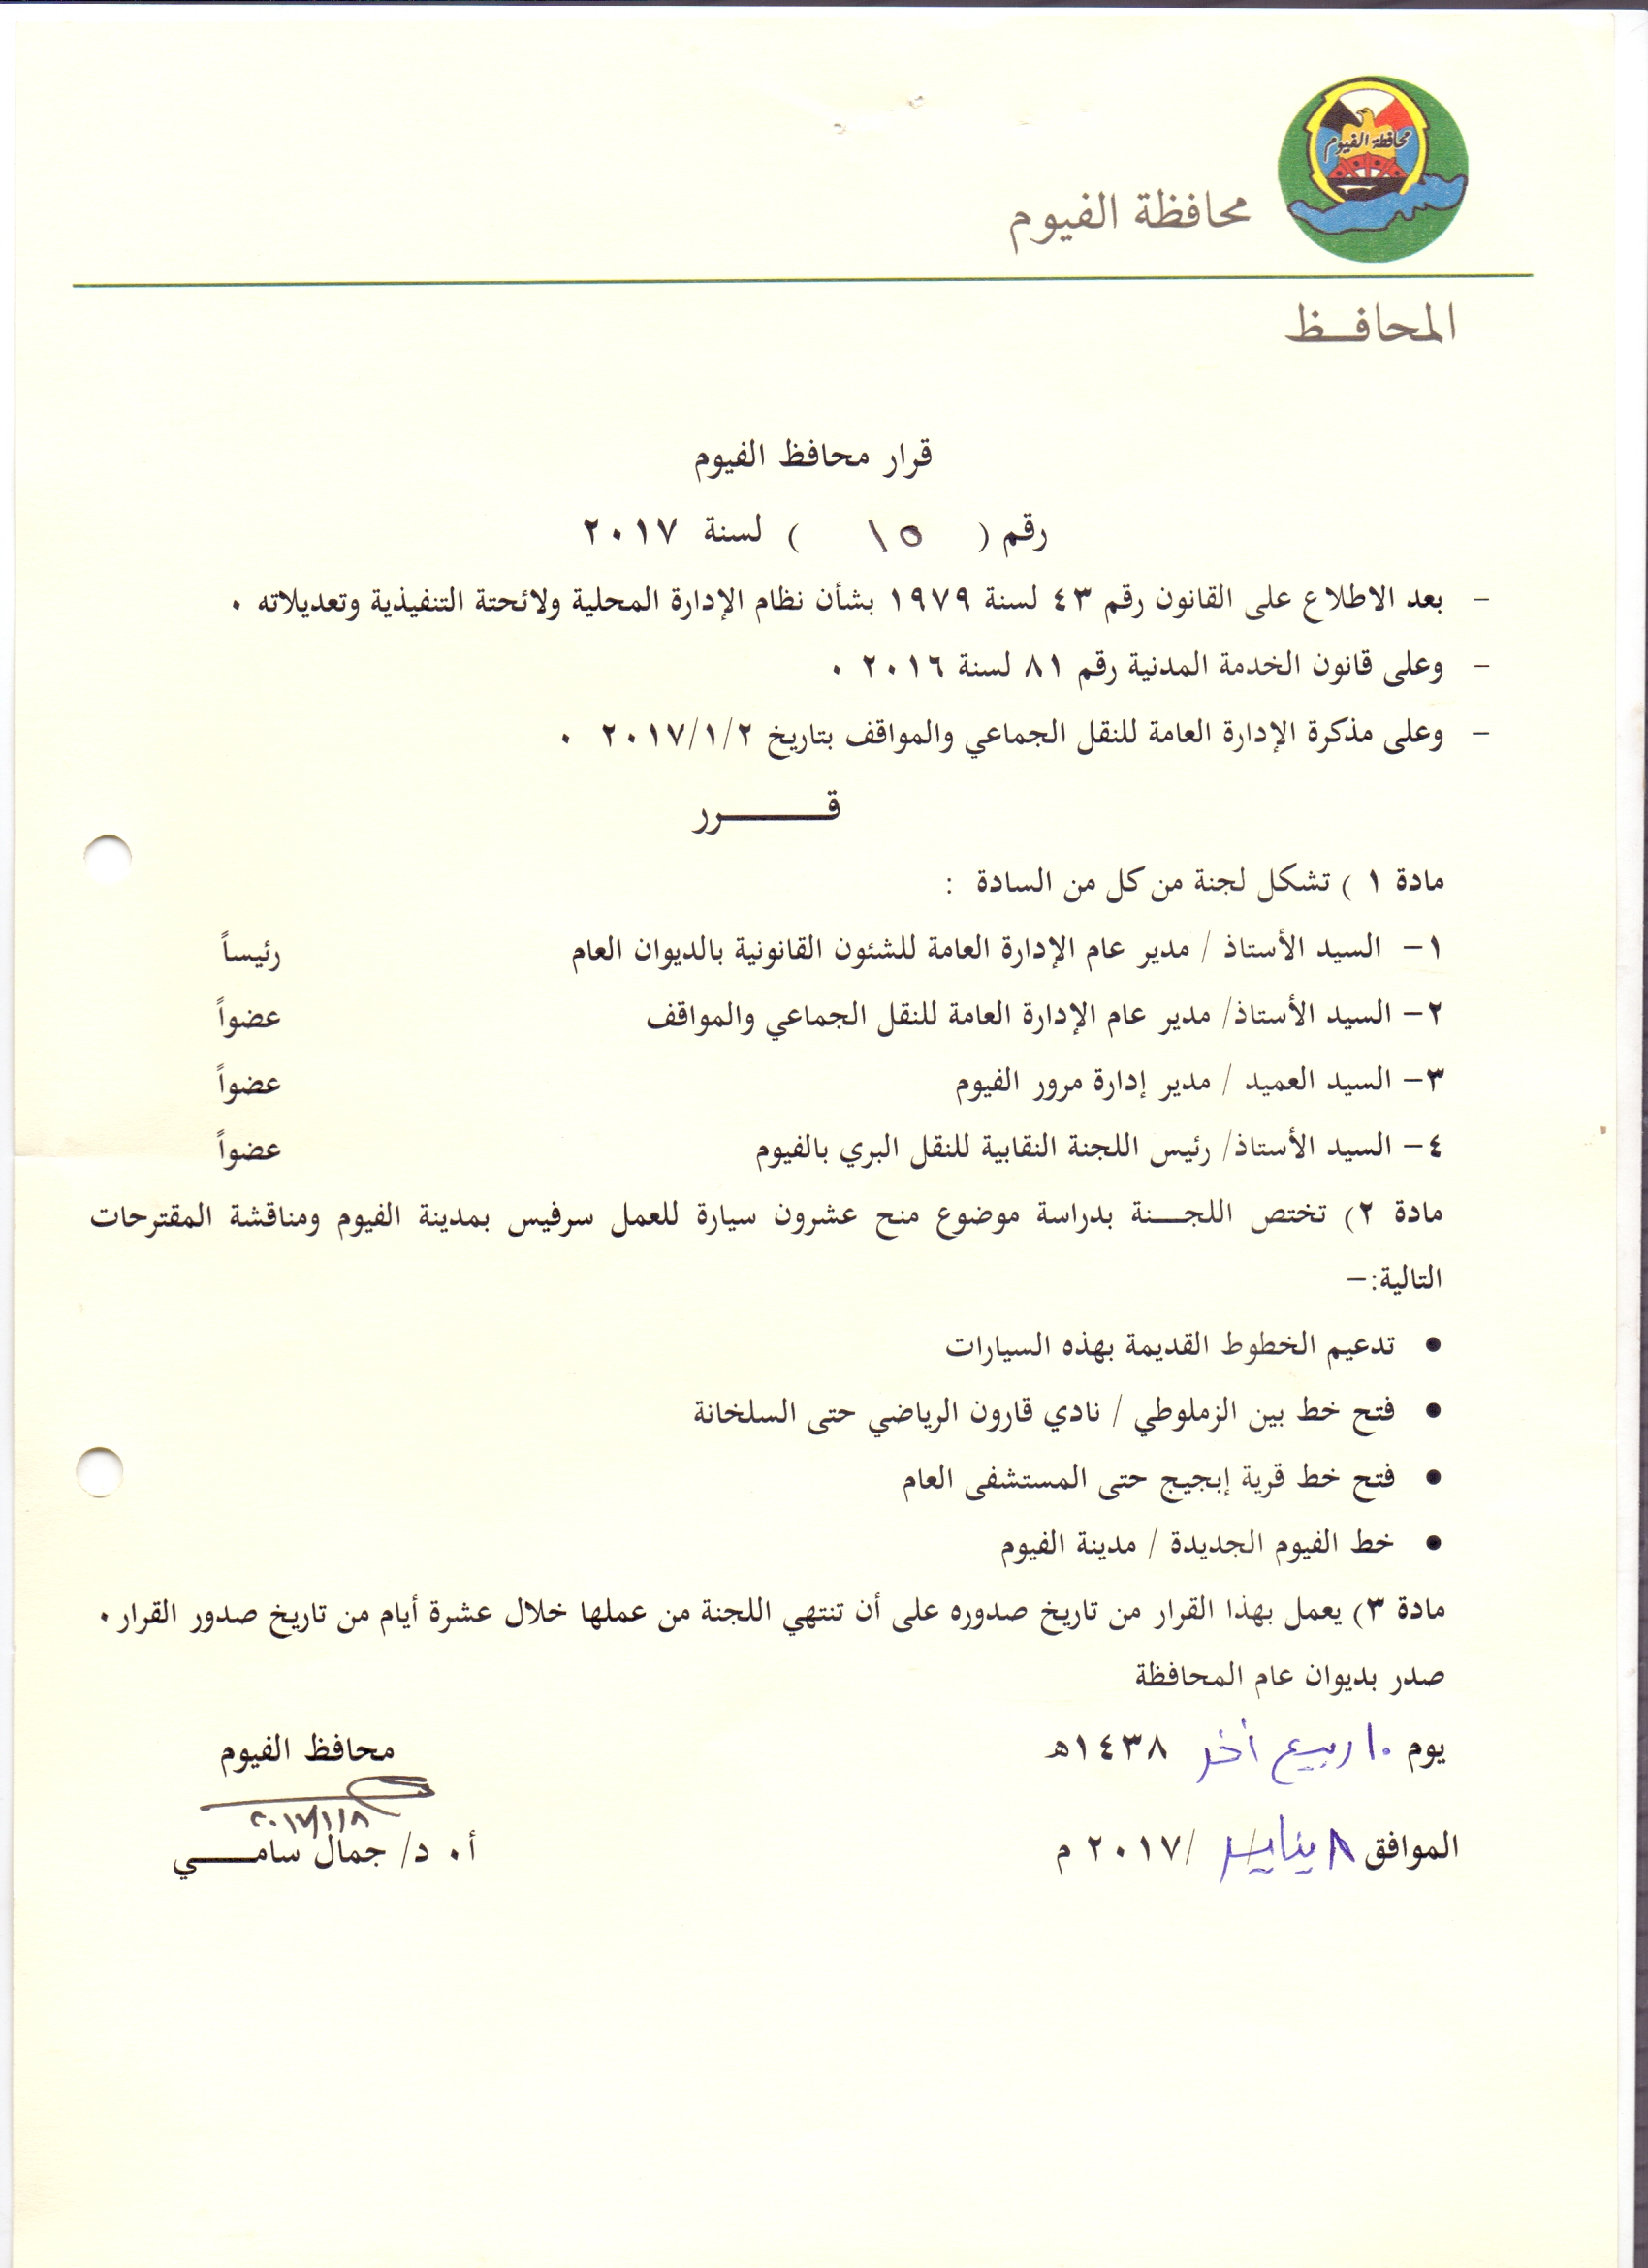 محافظة الفيوم
محافظة الفيوم
المحافــظ
قرار محافظ الفيوم
رقم ( ١٥ ) لسنة ٢٠١٧
– بعد الاطلاع على القانون رقم ٤٣ لسنة ١٩٧٩ بشأن نظام الإدارة المحلية ولائحتة التنفيذية وتعديلاته ٠
– وعلى قانون الخدمة المدنية رقم ٨١ لسنة ٢٠١٦ ٠
– وعلى مذكرة الإدارة العامة للنقل الجماعي والمواقف بتاريخ ٢٠١٧/١/٢ ٠
قــــــــرر
مادة ١ ) تشكل لجنة من كل من السادة :
١– السيد الأستاذ / مدير عام الإدارة العامة للشئون القانونية بالديوان العام رئيساً
٢– السيد الأستاذ/ مدير عام الإدارة العامة للنقل الجماعي والمواقف عضواً
٣– السيد العميد / مدير إدارة مرور الفيوم عضواً
٤– السيد الأستاذ/ رئيس اللجنة النقابية للنقل البري بالفيوم عضواً
مادة ٢) تختص اللجـــنة بدراسة موضوع منح عشرون سيارة للعمل سرفيس بمدينة الفيوم ومناقشة المقترحات
التالية:–
● تدعيم الخطوط القديمة بهذه السيارات
● فتح خط بين الزملوطي / نادي قارون الرياضي حتى السلخانة
● فتح خط قرية إبجيج حتى المستشفى العام
● خط الفيوم الجديدة / مدينة الفيوم
مادة ٣) يعمل بهذا القرار من تاريخ صدوره على أن تنتهي اللجنة من عملها خلال عشرة أيام من تاريخ صدور القرار٠
صدر بديوان عام المحافظة
يوم ١٠ ربيع آخر ١٤٣٨ه
محافظ الفيوم
٢٠١٧/١/٨
الموافق ٨ يناير /٢٠١٧ م
أ٠ د/ جمال سامـــــي